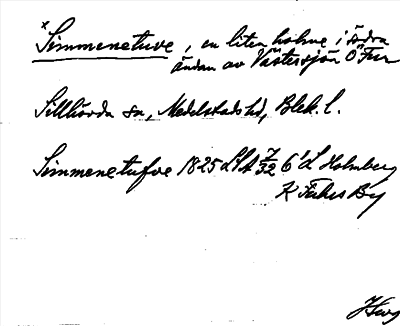 Simmenetuve, en liten holme i södra
ändan av Västersjön
Sillhövda sn, Medelstads hd, Blek. l.
Simmenetufve 1825 7/32 Holmberg